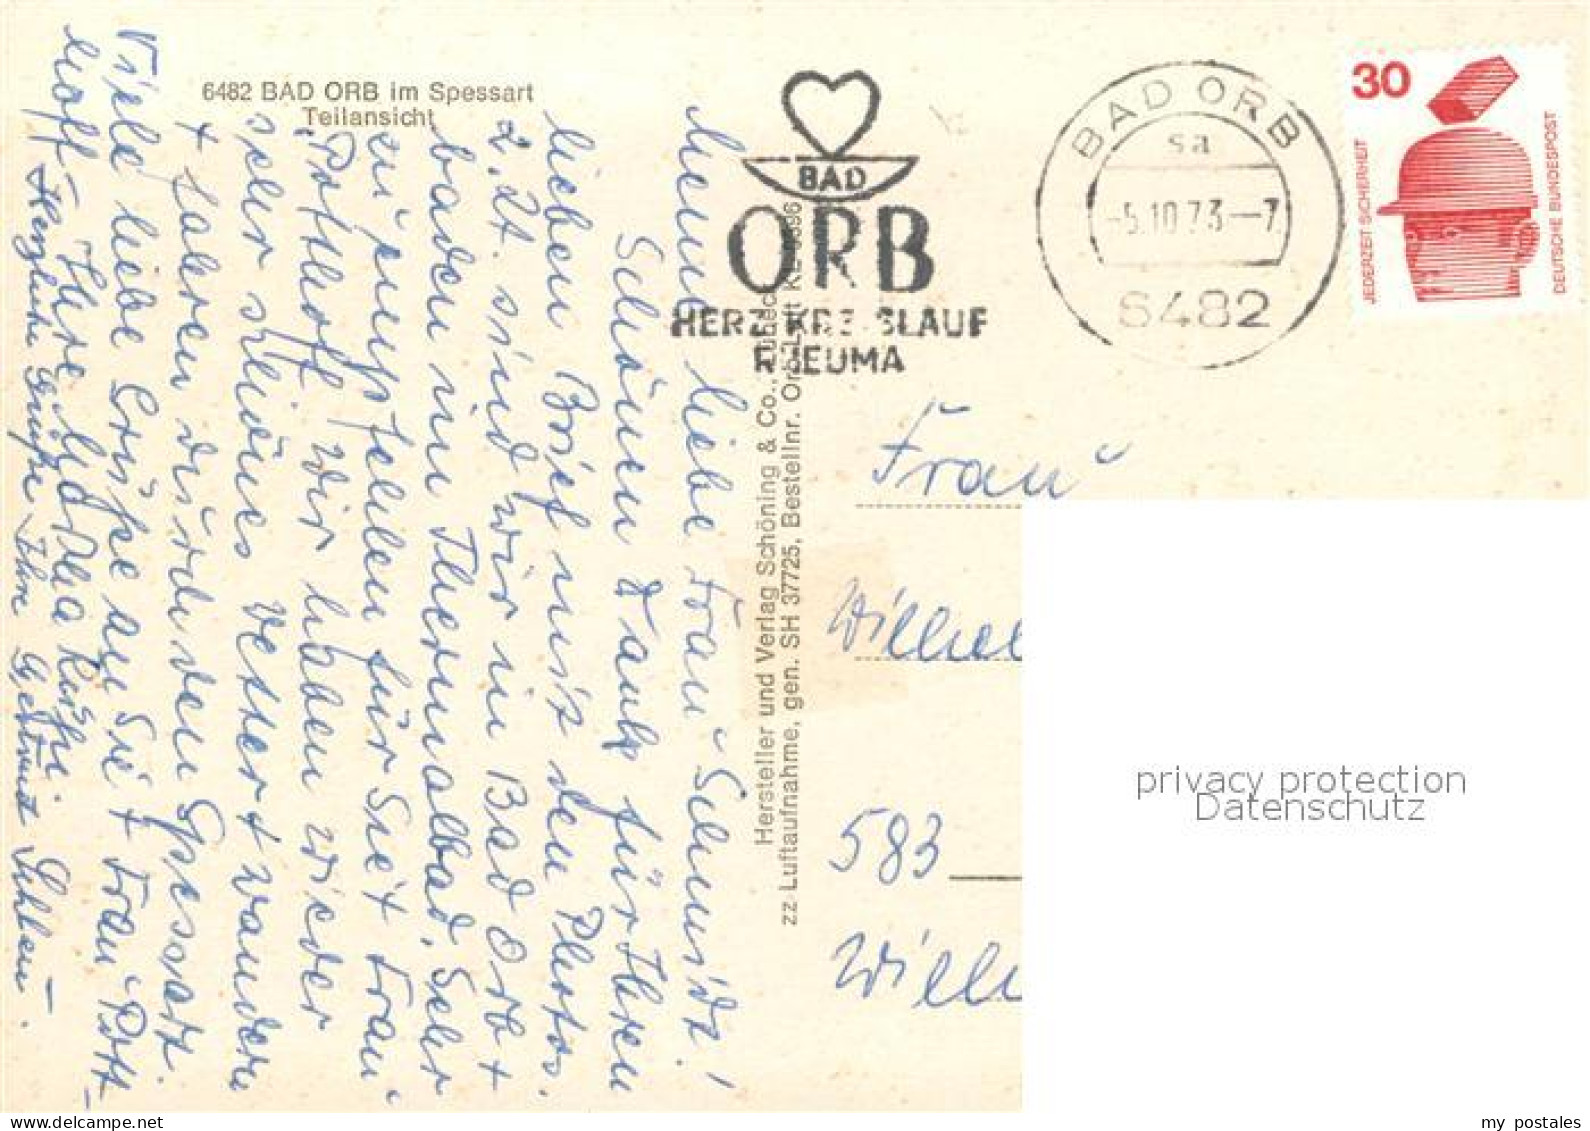 6482 BAD ORB im Spessart
Teilansicht
Meine liebe Frau Schmidt!
Schönen Dank für Ihren
lieben Brief mit den Photos.
z. Zt. sind wir in Bad Orb +
baden im Thermalbad. Sehr
zu empfehlen für Sie + Frau
Potthoff. Wir haben wieder
sehr schönes Wetter + wandern
+ fahren durch den Spessart.
Viele liebe Grüße an Sie + Frau Pott-
hoff. Ihre
Herzliche Grüße Ihre Gertrud
Hersteller und Verlag Schöning & Co.,
zz Luftaufnahme, gen. SH 37725, Bestellnr. Orb
BAD
ORB
HERZ KREISLAUF
RHEUMA
BAD ORB
sa
-5.10.73.-7
6482
30
JEDERZEIT SICHERHEIT
DEUTSCHE BUNDESPOST
Frau
583
privacy protection
Datenschutz
www.delcampe.net
my_postales